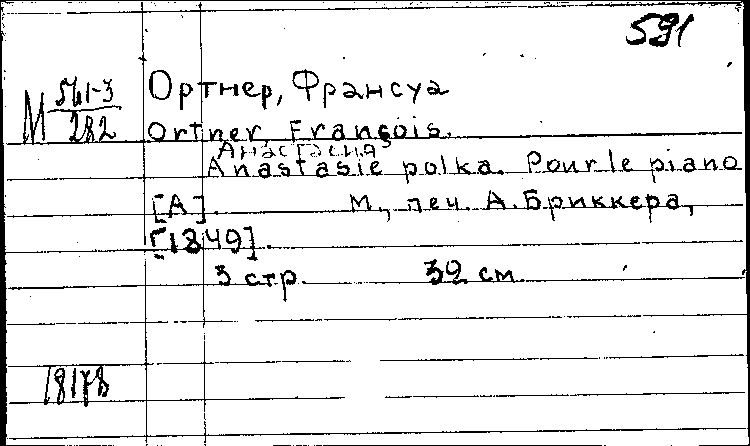 591
М 541-3/282
Ортнер, Франсуа
Ortner, François.
Анастасия
Anastasie polka. Pour le piano
[А]. М., печ. А. Бриккера,
[1849].
3 стр. 32 см
18178